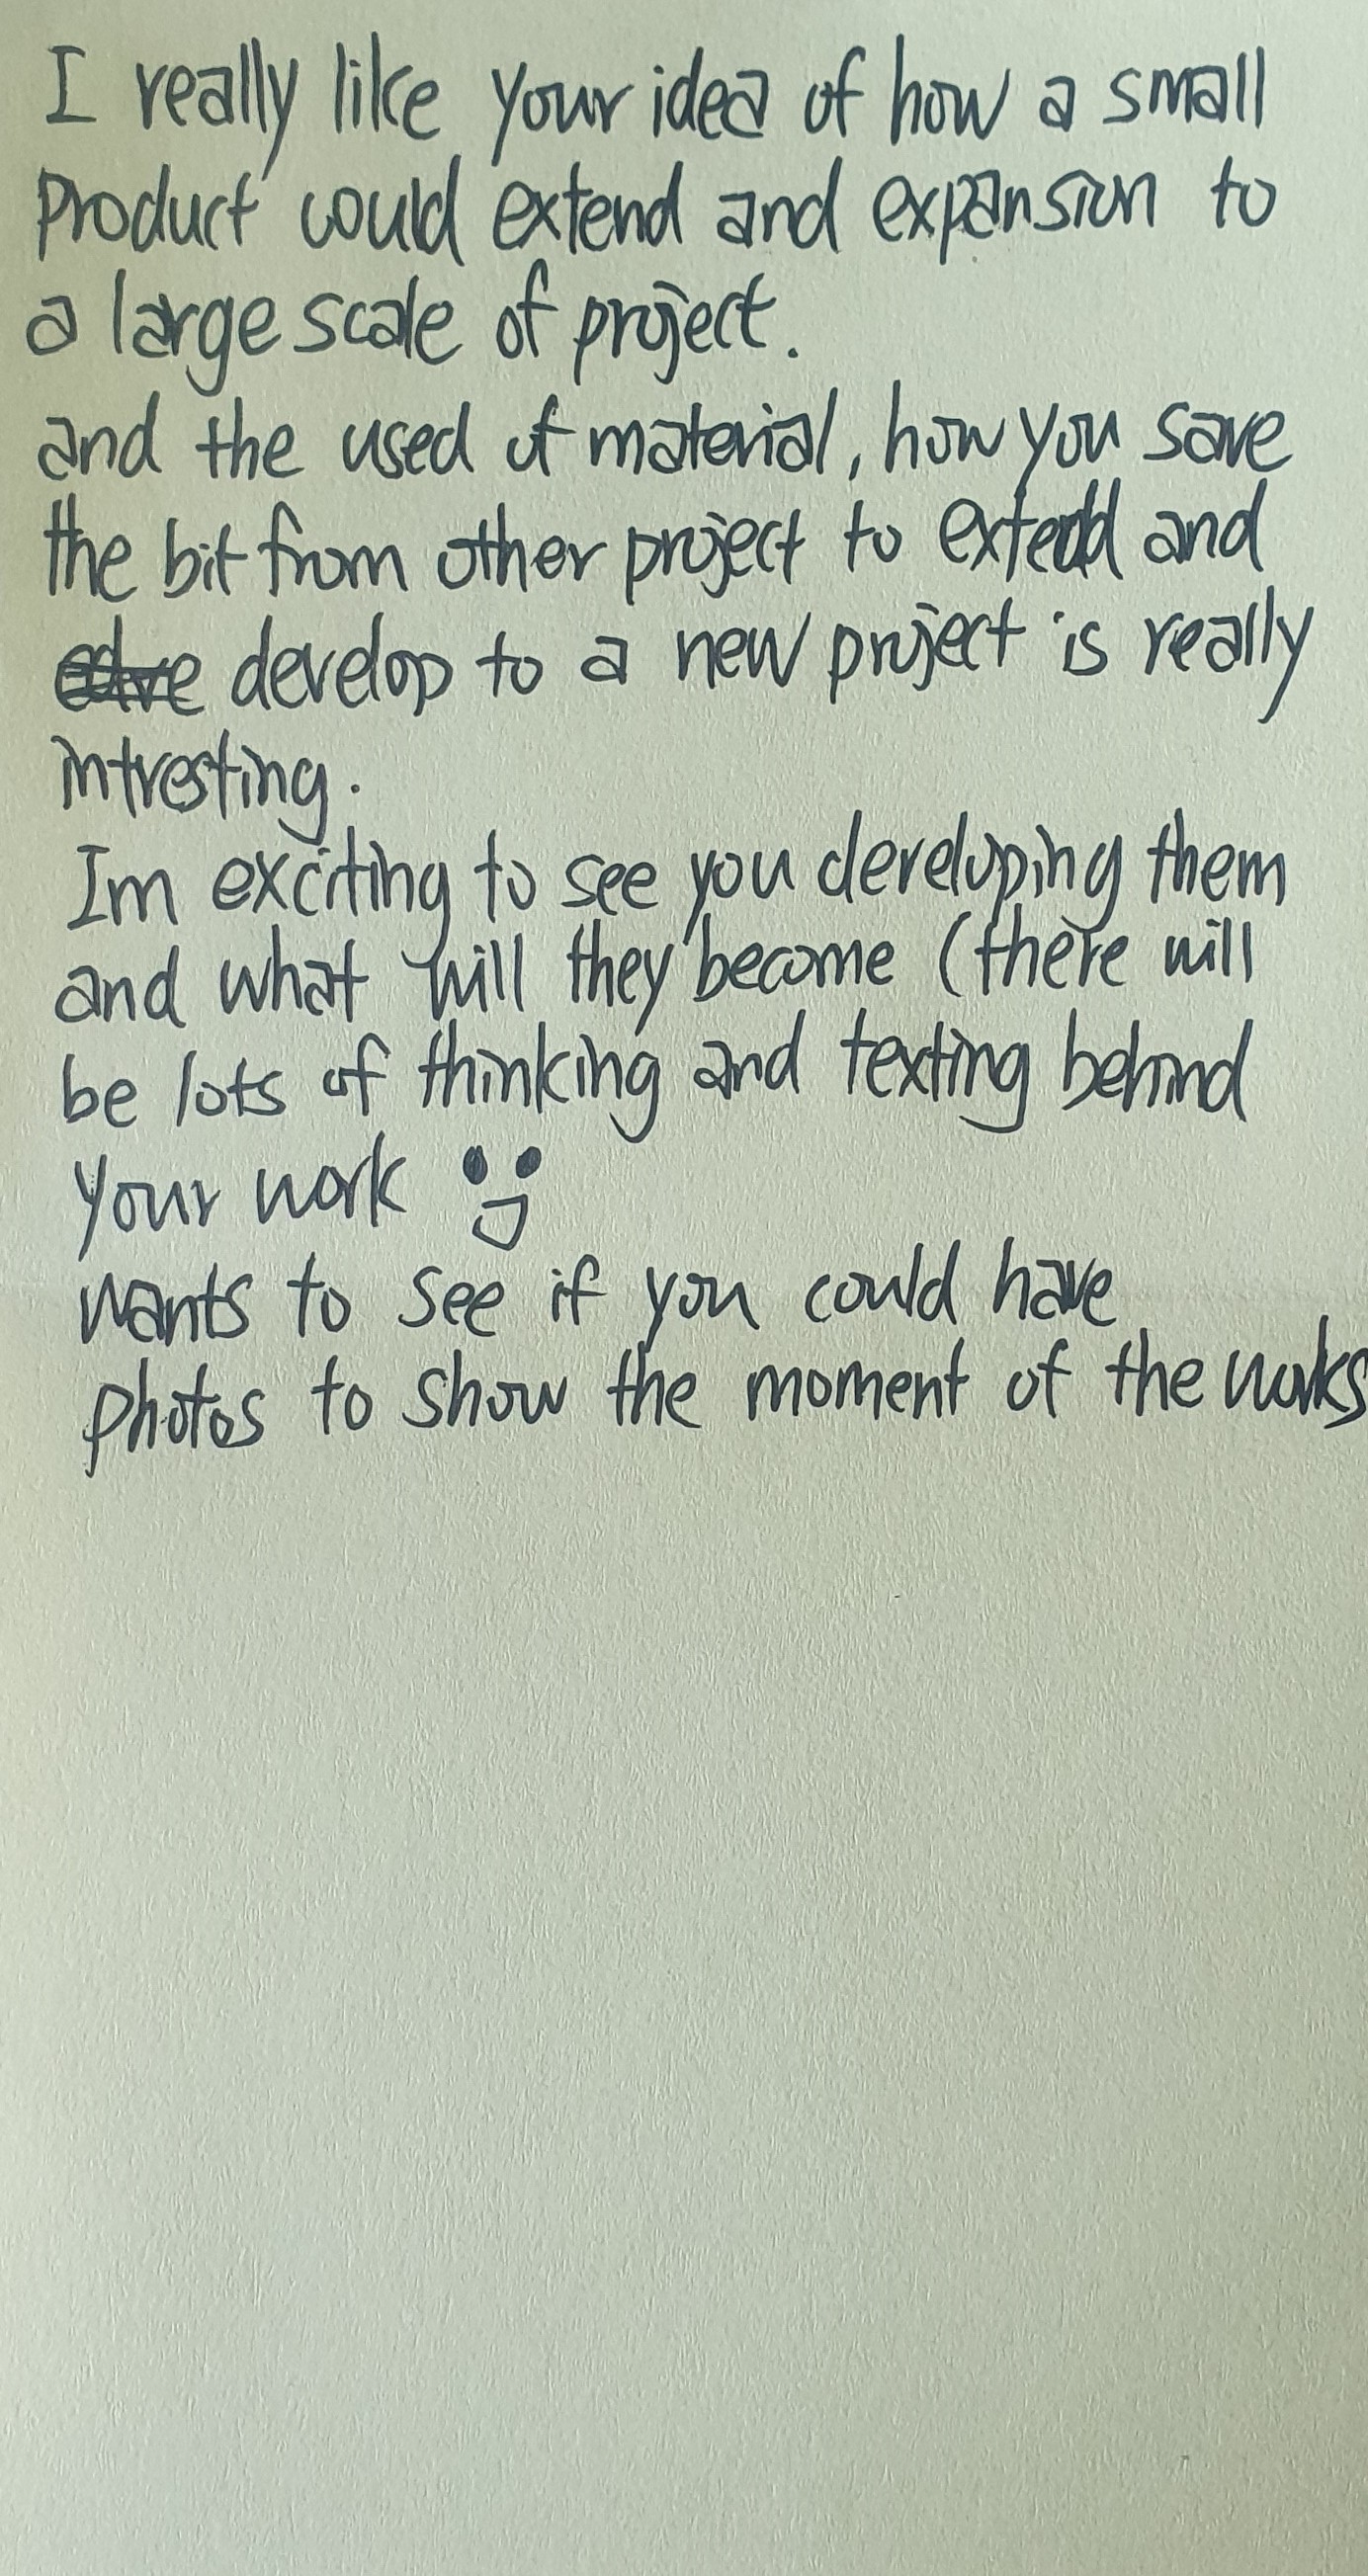 I really like your idea of how a small
product could extend and expansion to
a large scale of project.
and the used of material, how you save
the bit from other project to extend and
develop to a new project is really
intresting.
Im exciting to see you developing them
and what will they become (there will
be lots of thinking and texting behind
your work
wants to see if you could have
photos to show the moment of the works